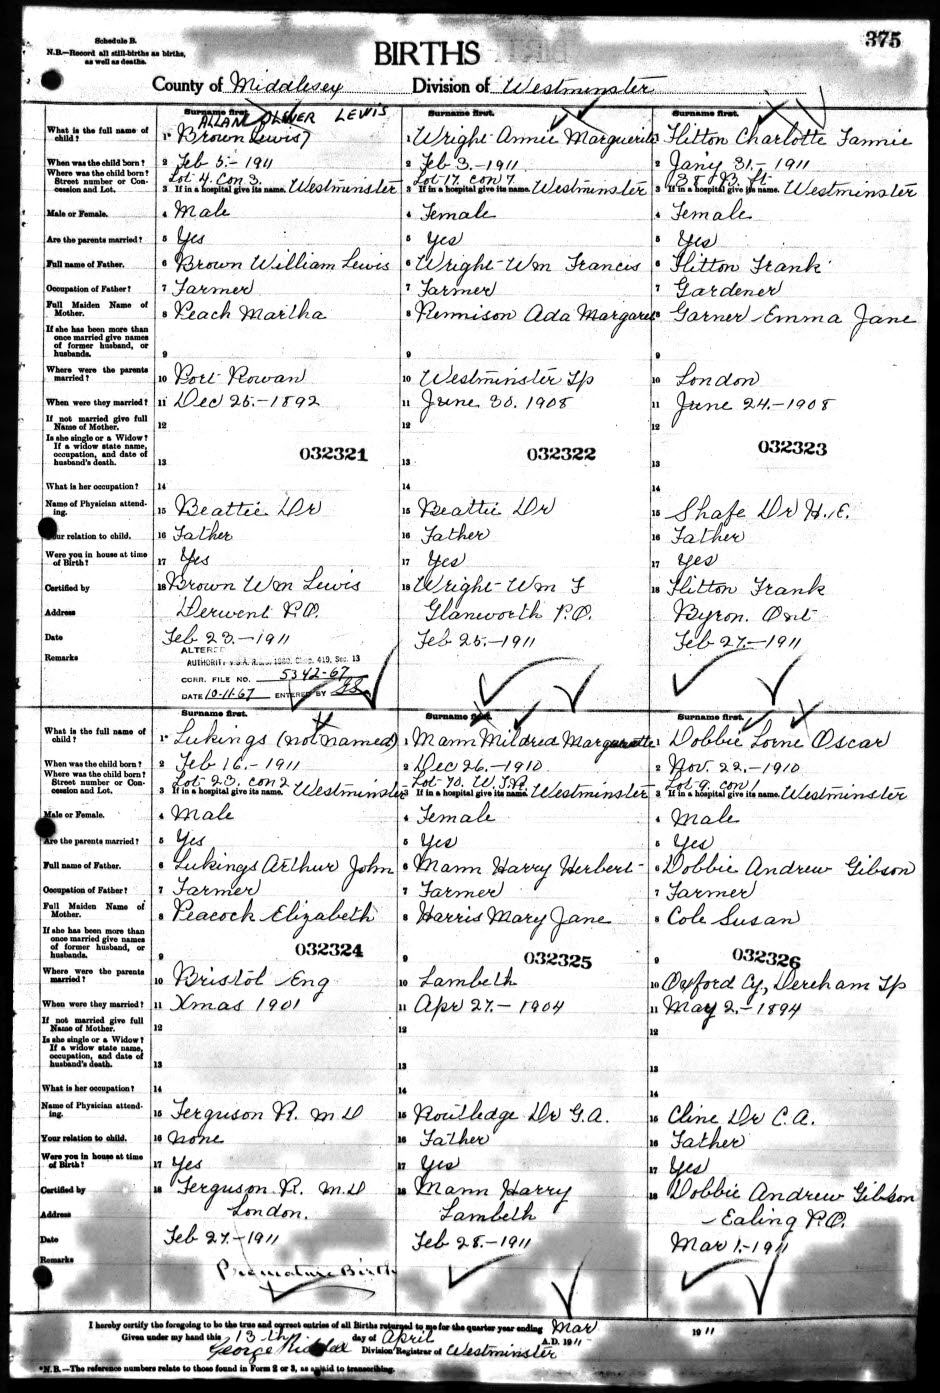 375
Schedule B.
N.B.—Record all still-births as births,
as well as deaths.
BIRTHS
County of Middlesex Division of Westminster
Surname first. Surname first. Surname first.
ALLAN OLIVER LEWIS
What is the full name of child? 1* Brown (Lewis) 1 Wright Annie Marguerite 1 Flitton Charlotte Fannie
When was the child born? 2 Feb 5.-1911 2 Feb 3.-1911 2 Jan'y 31.-1911
Where was the child born? Street number or Concession and Lot. Lot 4. Con 3. Lot 17. Con 7
3 If in a hospital give its name. Westminster 3 If in a hospital give its name. Westminster 3 If in a hospital give its name. Westminster
Male or Female. 4 Male 4 Female 4 Female
Are the parents married? 5 Yes 5 Yes 5 Yes
Full name of Father. 6 Brown William Lewis 6 Wright Wm Francis 6 Flitton Frank
Occupation of Father? 7 Farmer 7 Farmer 7 Gardener
Full Maiden Name of Mother. 8 Peach Martha 8 Rennison Ada Margaret 8 Garner Emma Jane
If she has been more than once married give names of former husband, or husbands. 9 9 9
Where were the parents married? 10 Port Rowan 10 Westminster Tp 10 London
When were they married? 11 Dec 25.-1892 11 June 30. 1908 11 June 24.-1908
If not married give full Name of Mother. 12 12 12
Is she single or a Widow? If a widow state name, occupation, and date of husband's death. 13 13 13
032321 032322 032323
What is her occupation? 14 14 14
Name of Physician attending. 15 Beattie Dr 15 Beattie Dr 15 Shafe Dr H. E.
Your relation to child. 16 Father 16 Father 16 Father
Were you in house at time of Birth? 17 Yes 17 Yes 17 Yes
Certified by 18 Brown Wm Lewis 18 Wright Wm F 18 Flitton Frank
Address Derwent P.O. Glanworth P.O. Byron. Ont
Date Feb 23.-1911 Feb 25.-1911 Feb 27.-1911
Remarks
ALTERED
AUTHORITY V.S.A. R.S.O. 1960, Chap. 419, Sec. 13
CORR. FILE NO. 5342-67
DATE 10-11-67 ENTERED BY
Surname first. Surname first. Surname first.
What is the full name of child? 1* Lukings (not named) 1 Mann Mildred Marguerette 1 Dobbie Lorne Oscar
When was the child born? 2 Feb 16.-1911 2 Dec 26.-1910 2 Nov. 22.-1910
Where was the child born? Street number or Concession and Lot. Lot 23. Con 2 Lot 70. W.T.R. Lot 9. Con 1
3 If in a hospital give its name. Westminster 3 If in a hospital give its name. Westminster 3 If in a hospital give its name. Westminster
Male or Female. 4 Male 4 Female 4 Male
Are the parents married? 5 Yes 5 Yes 5 Yes
Full name of Father. 6 Lukings Arthur John 6 Mann Harry Herbert 6 Dobbie Andrew Gibson
Occupation of Father? 7 Farmer 7 Farmer 7 Farmer
Full Maiden Name of Mother. 8 Peacock Elizabeth 8 Harris Mary Jane 8 Cole Susan
If she has been more than once married give names of former husband, or husbands. 9 9 9
032324 032325 032326
Where were the parents married? 10 Bristol Eng 10 Lambeth 10 Oxford Cy, Dereham Tp
When were they married? 11 Xmas 1901 11 Apr 27.-1904 11 May 2.-1894
If not married give full Name of Mother. 12 12 12
Is she single or a Widow? If a widow state name, occupation, and date of husband's death. 13 13 13
What is her occupation? 14 14 14
Name of Physician attending. 15 Ferguson R. M D 15 Routledge Dr G.A. 15 Cline Dr C.A.
Your relation to child. 16 none 16 Father 16 Father
Were you in house at time of Birth? 17 Yes 17 Yes 17 Yes
Certified by 18 Ferguson R. M D 18 Mann Harry 18 Dobbie Andrew Gibson
Address London. Lambeth Ealing P.O.
Date Feb 27.-1911 Feb 28.-1911 Mar 1.-1911
Remarks Premature Birth
I hereby certify the foregoing to be the true and correct entries of all Births returned to me for the quarter year ending Mar 1911
Given under my hand this 13th day of April A.D. 1911
George Riddle Division Registrar of Westminster
*N.B.—The reference numbers relate to those found in Form 2 or 3, as an aid to transcribing.